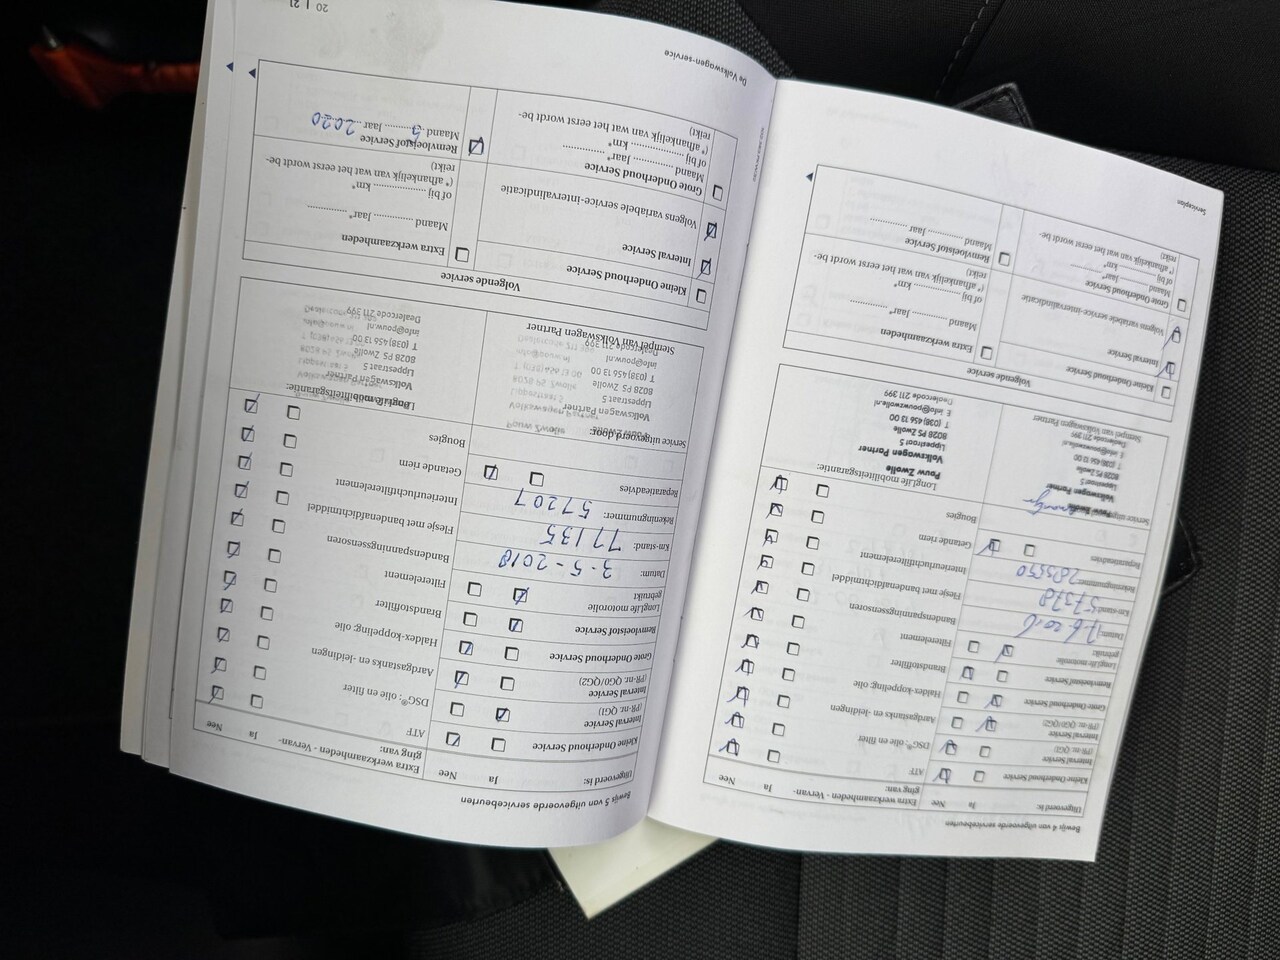 Bewijs 4 van uitgevoerde servicebeurten
Uitgevoerd is: Ja Nee
Kleine Onderhoud Service
Interval Service
(PR-nr. QG1)
Interval Service
(PR-nr. QG0/QG2)
Grote Onderhoud Service
Remvloeistof Service
LongLife motorolie
gebruikt:
Datum:
Km-stand: 57378
Rekeningnummer: 285550
Reparatieadvies
Service uitgevoerd door:
Pouw Zwolle
Volkswagen Partner
Lippestraat 5
8028 PS Zwolle
T (038) 456 13 00
E info@pouwzwolle.nl
Dealercode 211 399
Stempel van Volkswagen Partner
Extra werkzaamheden - Vervan-
ging van: Ja Nee
ATF
DSG®: olie en filter
Aardgastanks en -leidingen
Haldex-koppeling: olie
Brandstoffilter
Filterelement
Bandenspanningssensoren
Flesje met bandenafdichtmiddel
Interieurluchtfilterelement
Getande riem
Bougies
LongLife mobiliteitsgarantie:
Pouw Zwolle
Volkswagen Partner
Lippestraat 5
8028 PS Zwolle
T (038) 456 13 00
E info@pouwzwolle.nl
Dealercode 211 399
Volgende service
Kleine Onderhoud Service
Interval Service
Volgens variabele service-intervalindicatie
Grote Onderhoud Service
Maand ............ Jaar*
of bij ............ km*
(*afhankelijk van wat het eerst wordt be-
reikt)
Extra werkzaamheden
Maand ............ Jaar* ............
of bij ............ km*
(*afhankelijk van wat het eerst wordt be-
reikt)
Remvloeistof Service
Maand ............ Jaar ............
Serviceplan
Bewijs 5 van uitgevoerde servicebeurten
Uitgevoerd is: Ja Nee
Kleine Onderhoud Service
Interval Service
(PR-nr. QG1)
Interval Service
(PR-nr. QG0/QG2)
Grote Onderhoud Service
Remvloeistof Service
LongLife motorolie
gebruikt:
Datum: 3-5-2018
Km-stand: 77135
Rekeningnummer: 57207
Reparatieadvies
Service uitgevoerd door:
Volkswagen Partner
Lippestraat 5
8028 PS Zwolle
T (038) 456 13 00
Dealercode 211 399
Stempel van Volkswagen Partner
Extra werkzaamheden - Vervan-
ging van: Ja Nee
ATF
DSG®: olie en filter
Aardgastanks en -leidingen
Haldex-koppeling: olie
Brandstoffilter
Filterelement
Bandenspanningssensoren
Flesje met bandenafdichtmiddel
Interieurluchtfilterelement
Getande riem
Bougies
LongLife mobiliteitsgarantie:
Volkswagen Partner
Lippestraat 5
8028 PS Zwolle
T (038) 456 13 00
Dealercode 211 399
Volgende service
Kleine Onderhoud Service
Interval Service
Volgens variabele service-intervalindicatie
Grote Onderhoud Service
Maand ............ Jaar* ............
of bij ............ km*
(*afhankelijk van wat het eerst wordt be-
reikt)
Extra werkzaamheden
Maand ............ Jaar* ............
of bij ............ km*
(*afhankelijk van wat het eerst wordt be-
reikt)
Remvloeistof Service
Maand 5 Jaar 2020
De Volkswagen-service